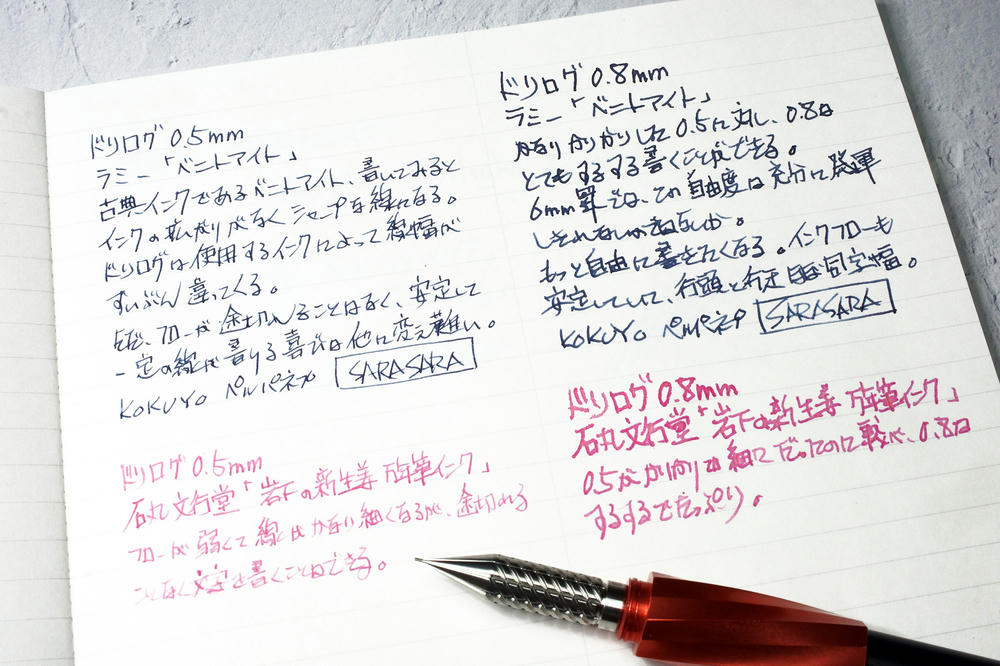 ドリログ 0.5mm
ラミー「ベニトアイト」
古典インクであるベニトアイト、書いてみると
インクの拡がりがなくシャープな線になる。
ドリログは使用するインクによって線幅が
ずいぶん違ってくる。
ただ、フローが途切れることはなく、安定して
一定の線が書ける喜びは他に変え難い。
KOKUYO ペルパネプ SARASARA
ドリログ 0.5mm
石丸文行堂「岩下の新生姜 万年筆インク」
フローが弱くて線はかなり細くなるが、途切れる
ことなく文字を書くことができる。
ドリログ 0.8mm
ラミー「ベニトアイト」
かなりかりかりした0.5に対し、0.8は
とてもするする書くことができる。
6mm罫では、この自由度は充分に発揮
しきれないかもねないか。
もっと自由に書きたくなる。インクフローも
安定していて、行頭と行末ほぼ同字幅。
KOKUYO ペルパネプ SARASARA
ドリログ 0.8mm
石丸文行堂「岩下の新生姜 万年筆インク」
0.5がかりかりで細くてだったのに較べ、0.8は
するするでたっぷり。